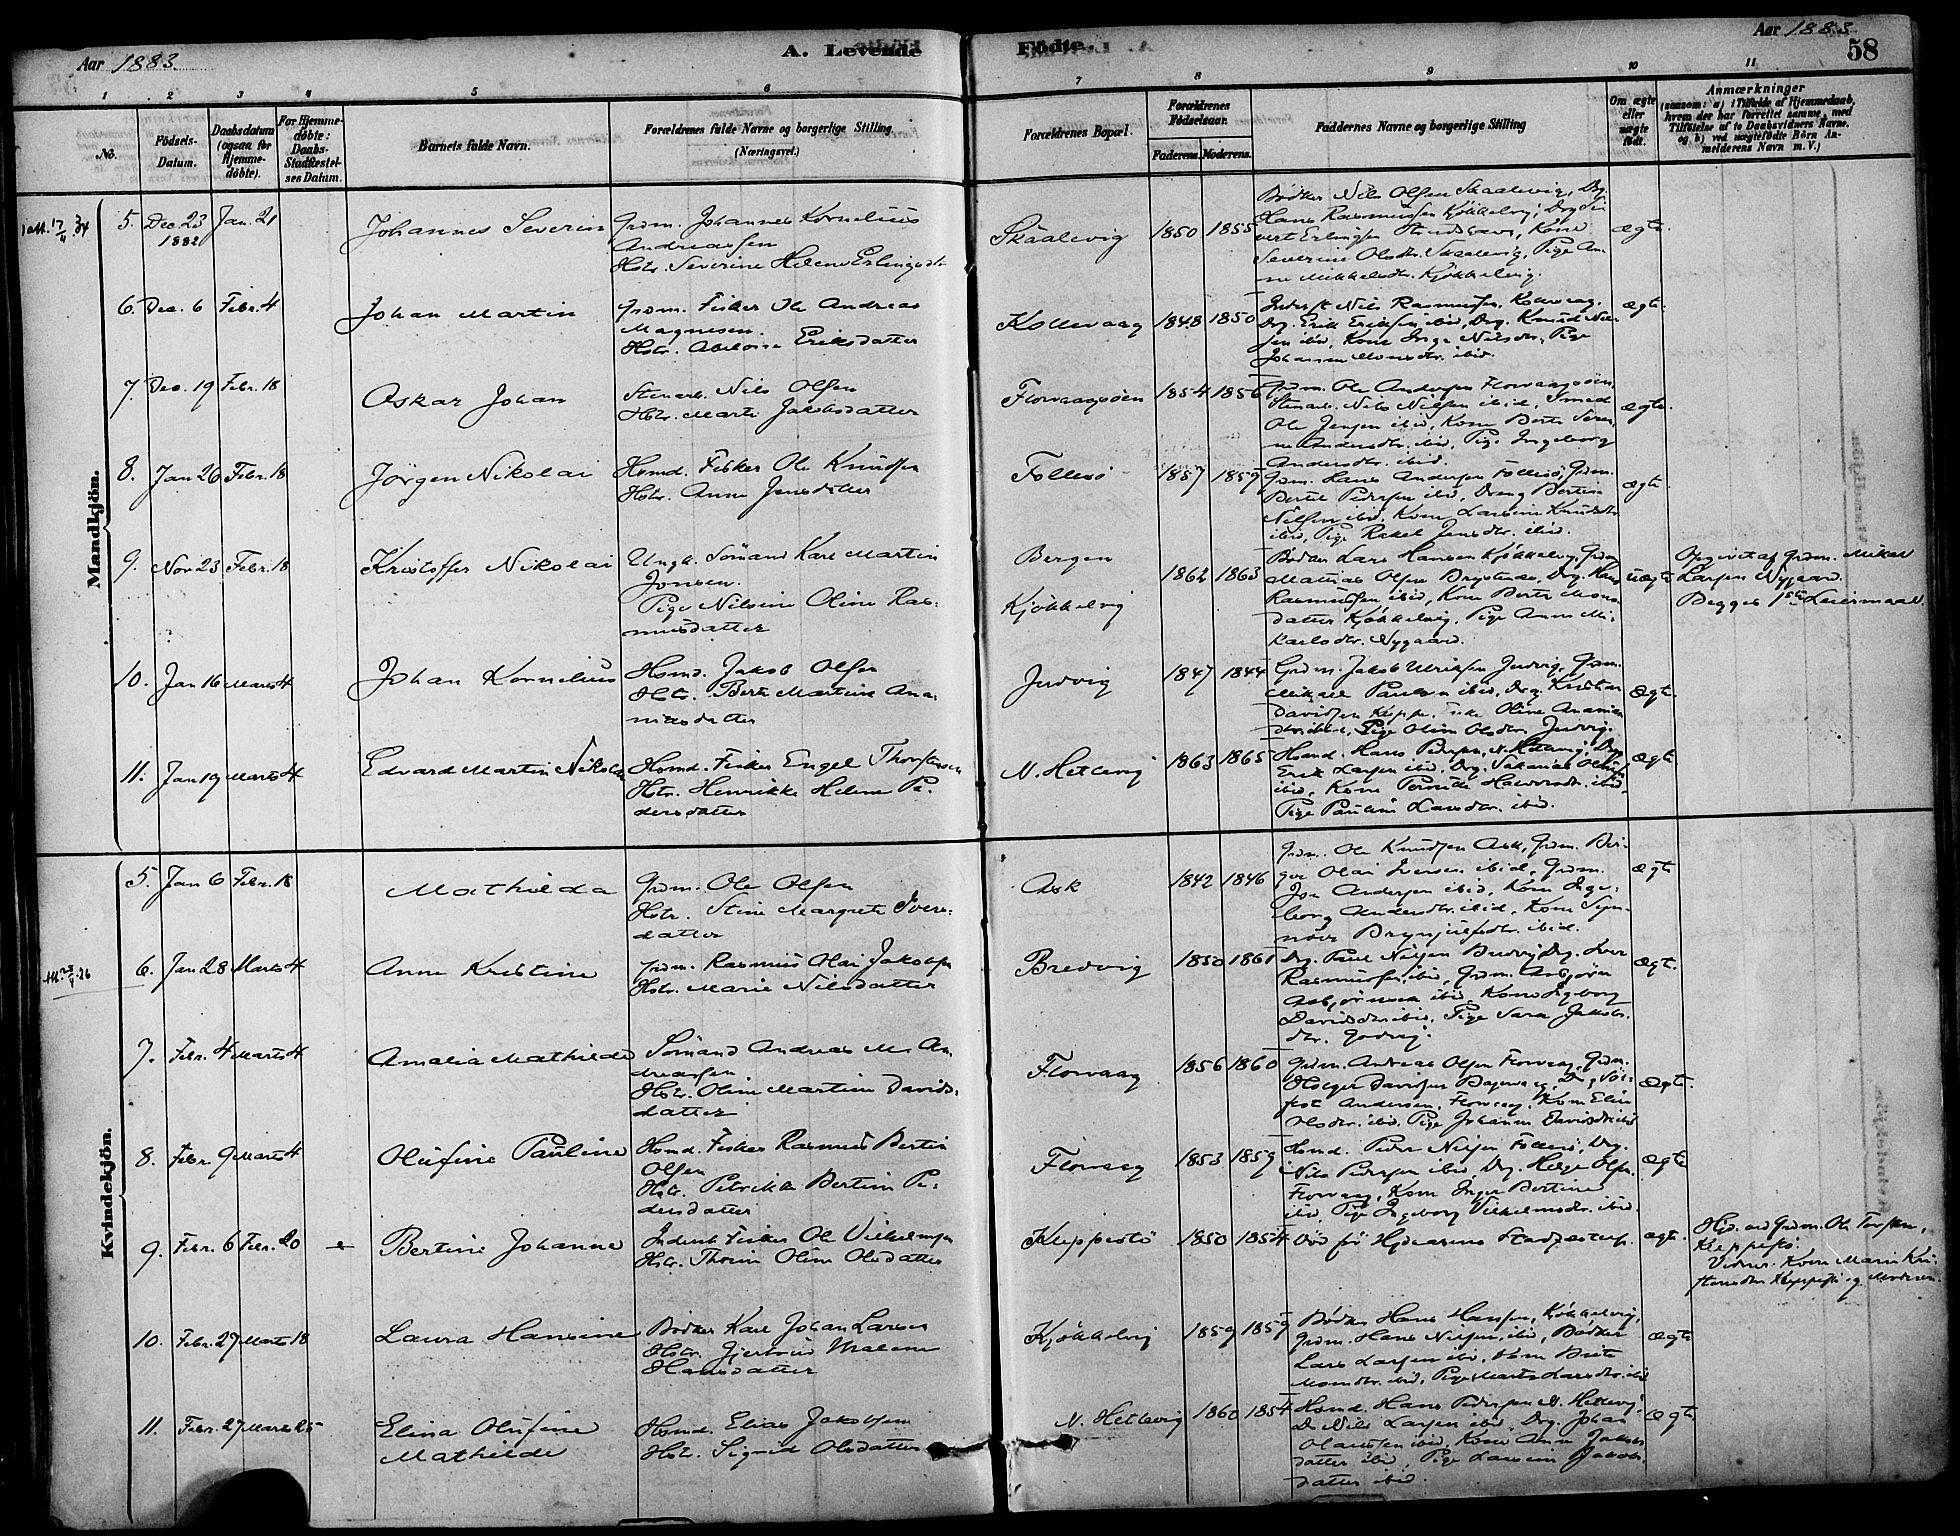 Aar 1883.
A. Levende
Födte.
Aar 1883.
58
1 2 3 4 5 6 7 8 9 10 11
No.
Födsels-
Datum.
Daabsdatum
(ogsaa for
Hjemme-
döbte).
For Hjemme-
döbte:
Daabs-
Stadfæstel-
ses Datum.
Barnets fulde Navn.
Forældrenes fulde Navne og borgerlige Stilling
(Næringsvei.)
Forældrenes Bopæl.
Forældrenes
Födselsaar.
Faderens. Moderens.
Faddernes Navne og borgerlige Stilling
Om ægte
eller
uægte
födt.
Anmærkninger
(saasom: a) i Tilfælde af Hjemmedaab,
hvem der har forrettet samme, med
Tilföielse af to Daabsvidners Navne.
og b) ved uægtefödte Börn An-
melderens Navn m.V.)
Mandkjön.
5. Dec. 23 Jan. 21
1882
Johannes Severin
Grdm. Johannes Kornelius
Andreassen
Hstr. Severine Helene Erlingsdtr
Skaalevig 1850 1855
Bödker Nils Olsen Skaalevig, Drg.
Hans Rasmussen Kjökkelvig, Drg.
Severine Olsdtr. Skaalevig, Pige An-
ne Mikkelsdtr. Kjökkelvig.
ægte
6. Dec. 6 Febr. 4
Johan Martin
Grdm. Fisker Ole Andreas
Magnesen.
Hstr. Abelone Eriksdatter
Kollevaag 1848 1850
Inderst Nils Rasmussen, Kollevaag,
Drg. Erik Eriksen ibid, Drg. Knud Nil-
sen ibid, Kone Inge Nilsdtr, Pige
Johanna Monsdtr. ibid.
ægte
7. Dec. 19 Febr. 18
Askar Johan
Stenarb. Nils Olsen
Hstr. Marte Jakobsdatter
Florvaagöen 1854 1856
Grdm. Ole Andersen Florvaagöen,
Stenarb. Nils Nilsen ibid, Smed
Ole Jensen ibid, Kone Berte Seve-
ne Andersdtr. ibid, Pige Ingeborg
Andersdtr. ibid.
ægte
8. Jan 26 Febr. 18
Jörgen Nikolai
Hsmd. Fisker Ole Knudsen
Hstr. Anne Jensdatter
Follesö 1857 1859
Grdm. Hans Andersen Follesö, Grdm.
Bertel Pedersen ibid, Dreng Bertin
Nilsen ibid, Kone Larsine Knudsdtr
ibid, Pige Rakel Jensdtr. ibid.
ægte
9. Nov 23 Febr. 18
Kristoffer Nikolai
Ungk. Sömand Karl Martin
Jonsen.
Pige Nilsine Oline Ras-
musdatter
Bergen
Kjökkelvig
1862 1863
Bödker Lars Hansen Kjökkelvig, Grdm
Mathias Olsen, Drg. Hans
Rasmussen ibid, Kone Berte Mons-
datter Kjökkelvig, Pige Anne Mi-
kaelsdtr. Nygaard.
uægte
Opgivet af Grdm. Mikal
Larsen Nygaard.
Begges 1ste Leiermaal.
10. Jan 16 Marts 4
Johan Kornelius
Hsmd. Jakob Olsen
Hstr. Berte Martine Ana-
niasdatter
Judvig 1847 1844
Grdm. Jakob Ulriksen Judvig, Grdm.
Mikael Paulsen ibid, Drg. Kristian
Davidsen Kleppe, Enke Oline Ananias-
dtr ibid, Pige Oline Olsdtr. Judvig.
ægte.
11. Jan 19 Marts 4
Edvard Martin Nikolai
Hsmd. Fisker Engel Thorstensen
Hstr. Henrikke Helene Pe-
dersdatter
N. Hetlevig 1863 1865
Hsmd. Hans Pedersen N. Hetlevig, Drg.
Erik Larsen ibid, Drg. Sakarias Olsen
ibid, Kone Pernille Halvorsdtr. ibid,
Pige Pauline Larsdtr. ibid.
ægte
Kvindekjön.
5. Jan 6 Febr. 18
Mathilda
Grdm. Ole Olsen
Hstr. Stine Margrete Ivers-
datter
Ask 1842 1846
Grdm. Ole Knudsen Ask, Grdm. Bir-
ger Olai Iversen ibid, Grdm.
Jon Andersen ibid, Kone Inge-
borg Andersdtr. ibid, Kone Syn-
növe Brynjulfsdtr. ibid.
ægte
6. Jan 28 Marts 4
Anne Kristine
Grdm. Rasmus Olai Jakobsen
Hstr. Marie Nilsdatter
Bredvig 1850 1861
Drg. Paul Nilsen Bredvig, Drg. Iver
Rasmussen ibid, Grdm. Asbjörn
Asbjörnsen ibid, Kone Ingeborg
Davidsdtr ibid, Pige Sara Jakobs-
dtr. Godvig.
ægt.
7. Febr. 4 Marts 4
Amalia Mathilde
Sömand Andreas M. An-
dreassen
Hstr. Oline Martine Davids-
datter
Florvaag 1856 1860
Grdm. Andreas Olsen Florvaag, Grdm.
Holger Davidsen
Andersen, Florvaag, Kone Elen
Olsdtr. ibid, Pige Johanna Davidsdtr ibid
ægte.
8. Febr. 9 Marts 4
Olufine Pauline
Hsmd. Fisker Rasmus Bertin
Olsen
Hstr. Petrikke Bertine Pe-
dersdatter
Florvaag 1853 1859
Hsmd. Peder Nilsen Follesö, Drg.
Nils Pedersen ibid, Drg. Helge Olsen
Florvaag, Kone Inger Bertine
ibid, Pige Ingeborg Vilhelmsdtr. ibid.
ægte
9. Febr. 6 Febr. 20
Bertine Johanne
Inderst Fisker Ole Vilhelmsen
Hstr. Thorine Oline Olsdatter
Kleppestö 1850 1854
Död för Hjdaabens Stadfæstelse.
ægt.
Hjd. ved Grdm. Ole Torsten,
Kleppestö.
Vidner. Kone Marie Kri-
stensdtr Kleppestö og Moderen.
10. Febr. 27 Marts 18
Laura Hansine
Bödker Karl Johan Larsen
Hstr. Gjertrud Malene
Hansdatter
Kjökkelvig 1859 1859
Bödker Hans Hansen, Kjökkelvig,
Grdm. Hans Nilsen, ibid, Bödker
Lars Larsen ibid, Kone Brite
Monsdtr. ibid, Pige Marta Larsdtr. ibid
ægte
11. Febr. 27 Marts 25
Elina Olufine
Mathilde
Hsmd. Elias Jakobsen
Hstr. Sigrid Olsdatter
N. Hetlevig 1860 1854
Hsmd. Hans Pedersen N. Hetlevig
D. Nils Larsen ibid, Drg. Johan
ibid, Kone Anne Jakobs-
datter ibid, Pige Larsine Jakobs-
datter ibid.
ægte